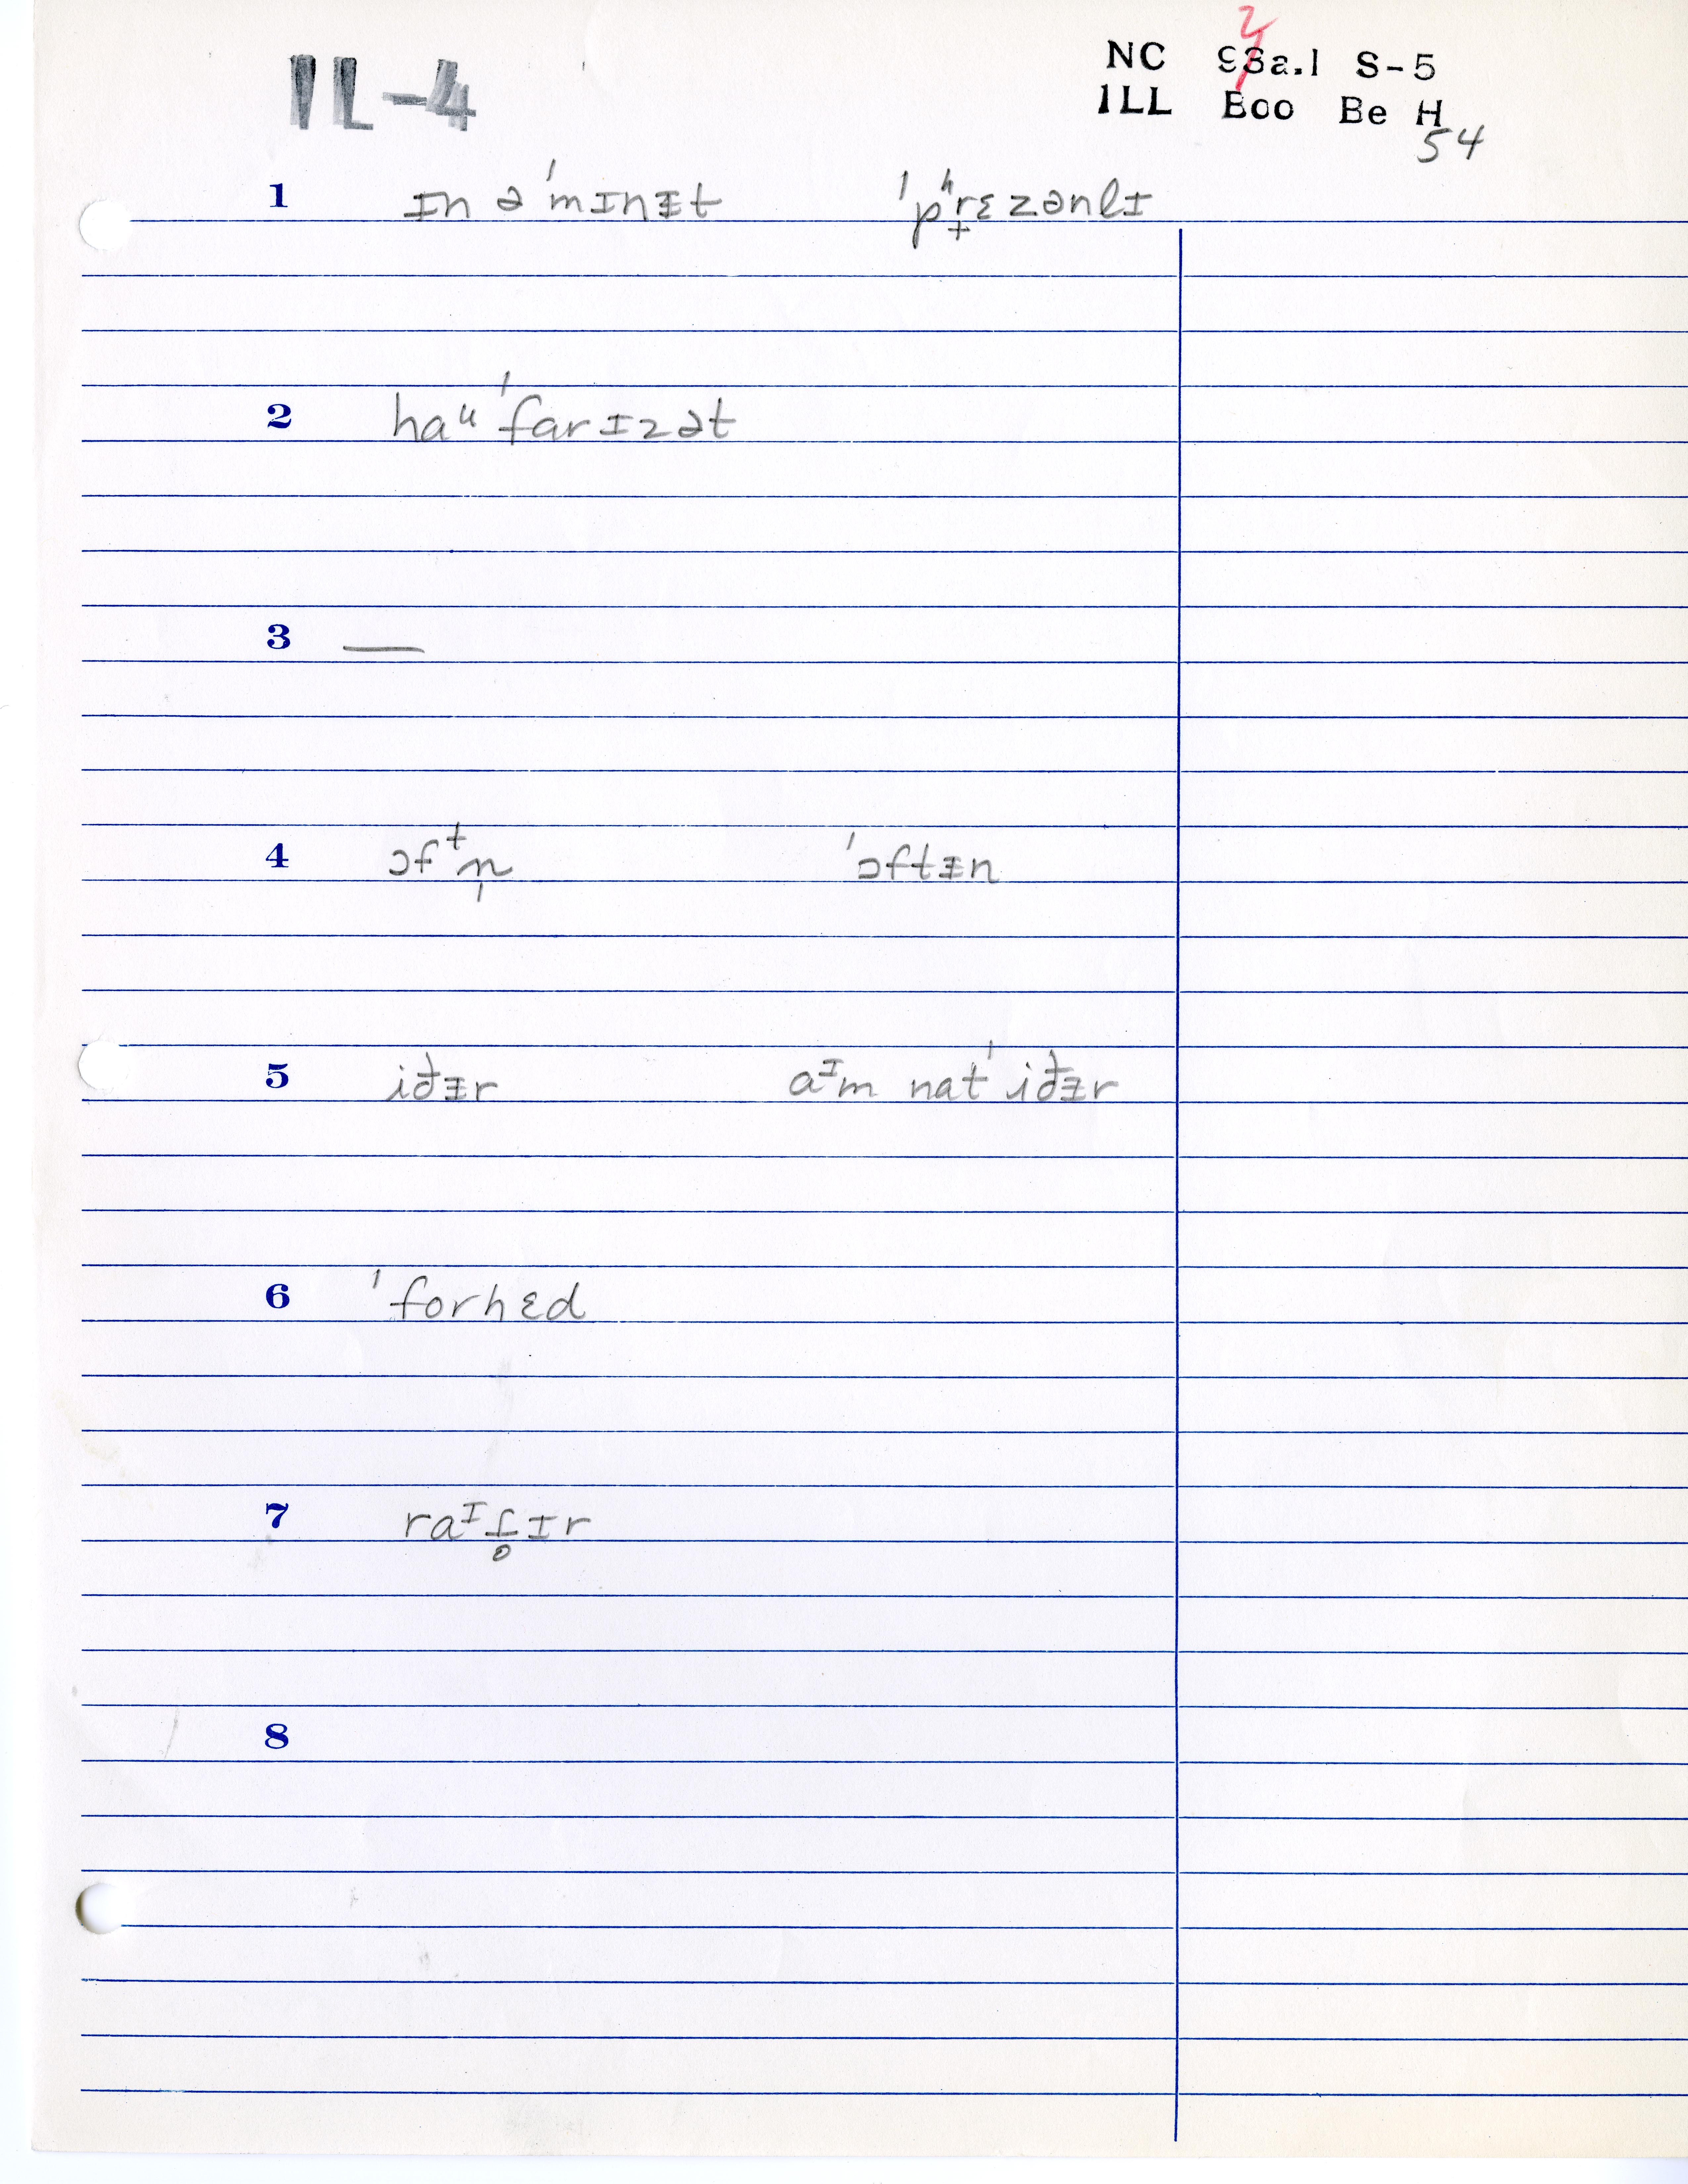 IL-4
NC 93a.1 S-5
ILL Boo Be H
54
1 ɪn ə ˈmɪnᵻt ˈpʰr̟ɛzənlɪ
2 haᵘ ˈfarɪzət
3 —
4 ɔfᵗn̩ ˈɔftᵻn
5 iðᵻr aᶦm nat ˈiðᵻr
6 ˈforhɛd
7 raᶦf̬ɪr
8